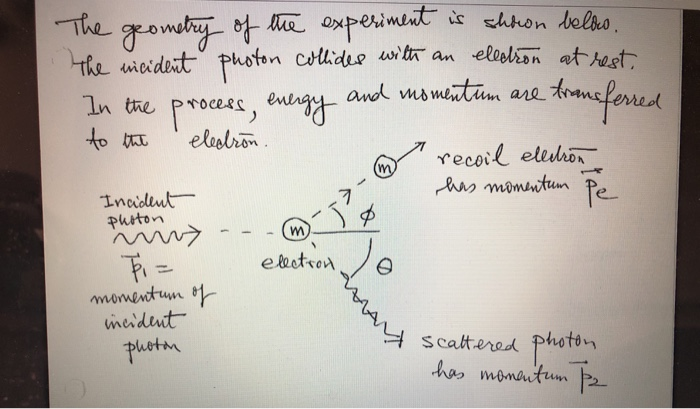 The geometry of the experiment is shown below.
The incident photon collides with an electron at rest.
In the process, energy and momentum are transferred
to the electron.
m
recoil electron
has momentum Pe
Incident
photon
ϕ
m
electron
θ
P1 =
momentum of
incident
photon
scattered photon
has momentum P2